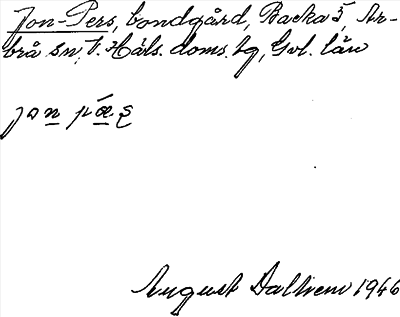 Jon-Pers, bondgård, Backa 5, Ar-
brå sn, V. Häls. doms. hg, Gvl. län
jon pæș
August Dallrem 1946